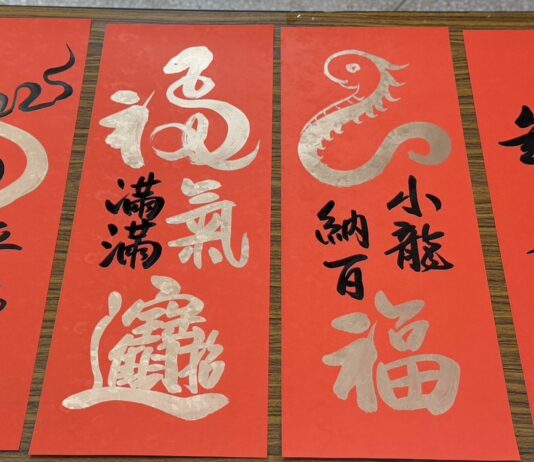 2025
福氣
滿滿
招財進寶
小龍
納百
福